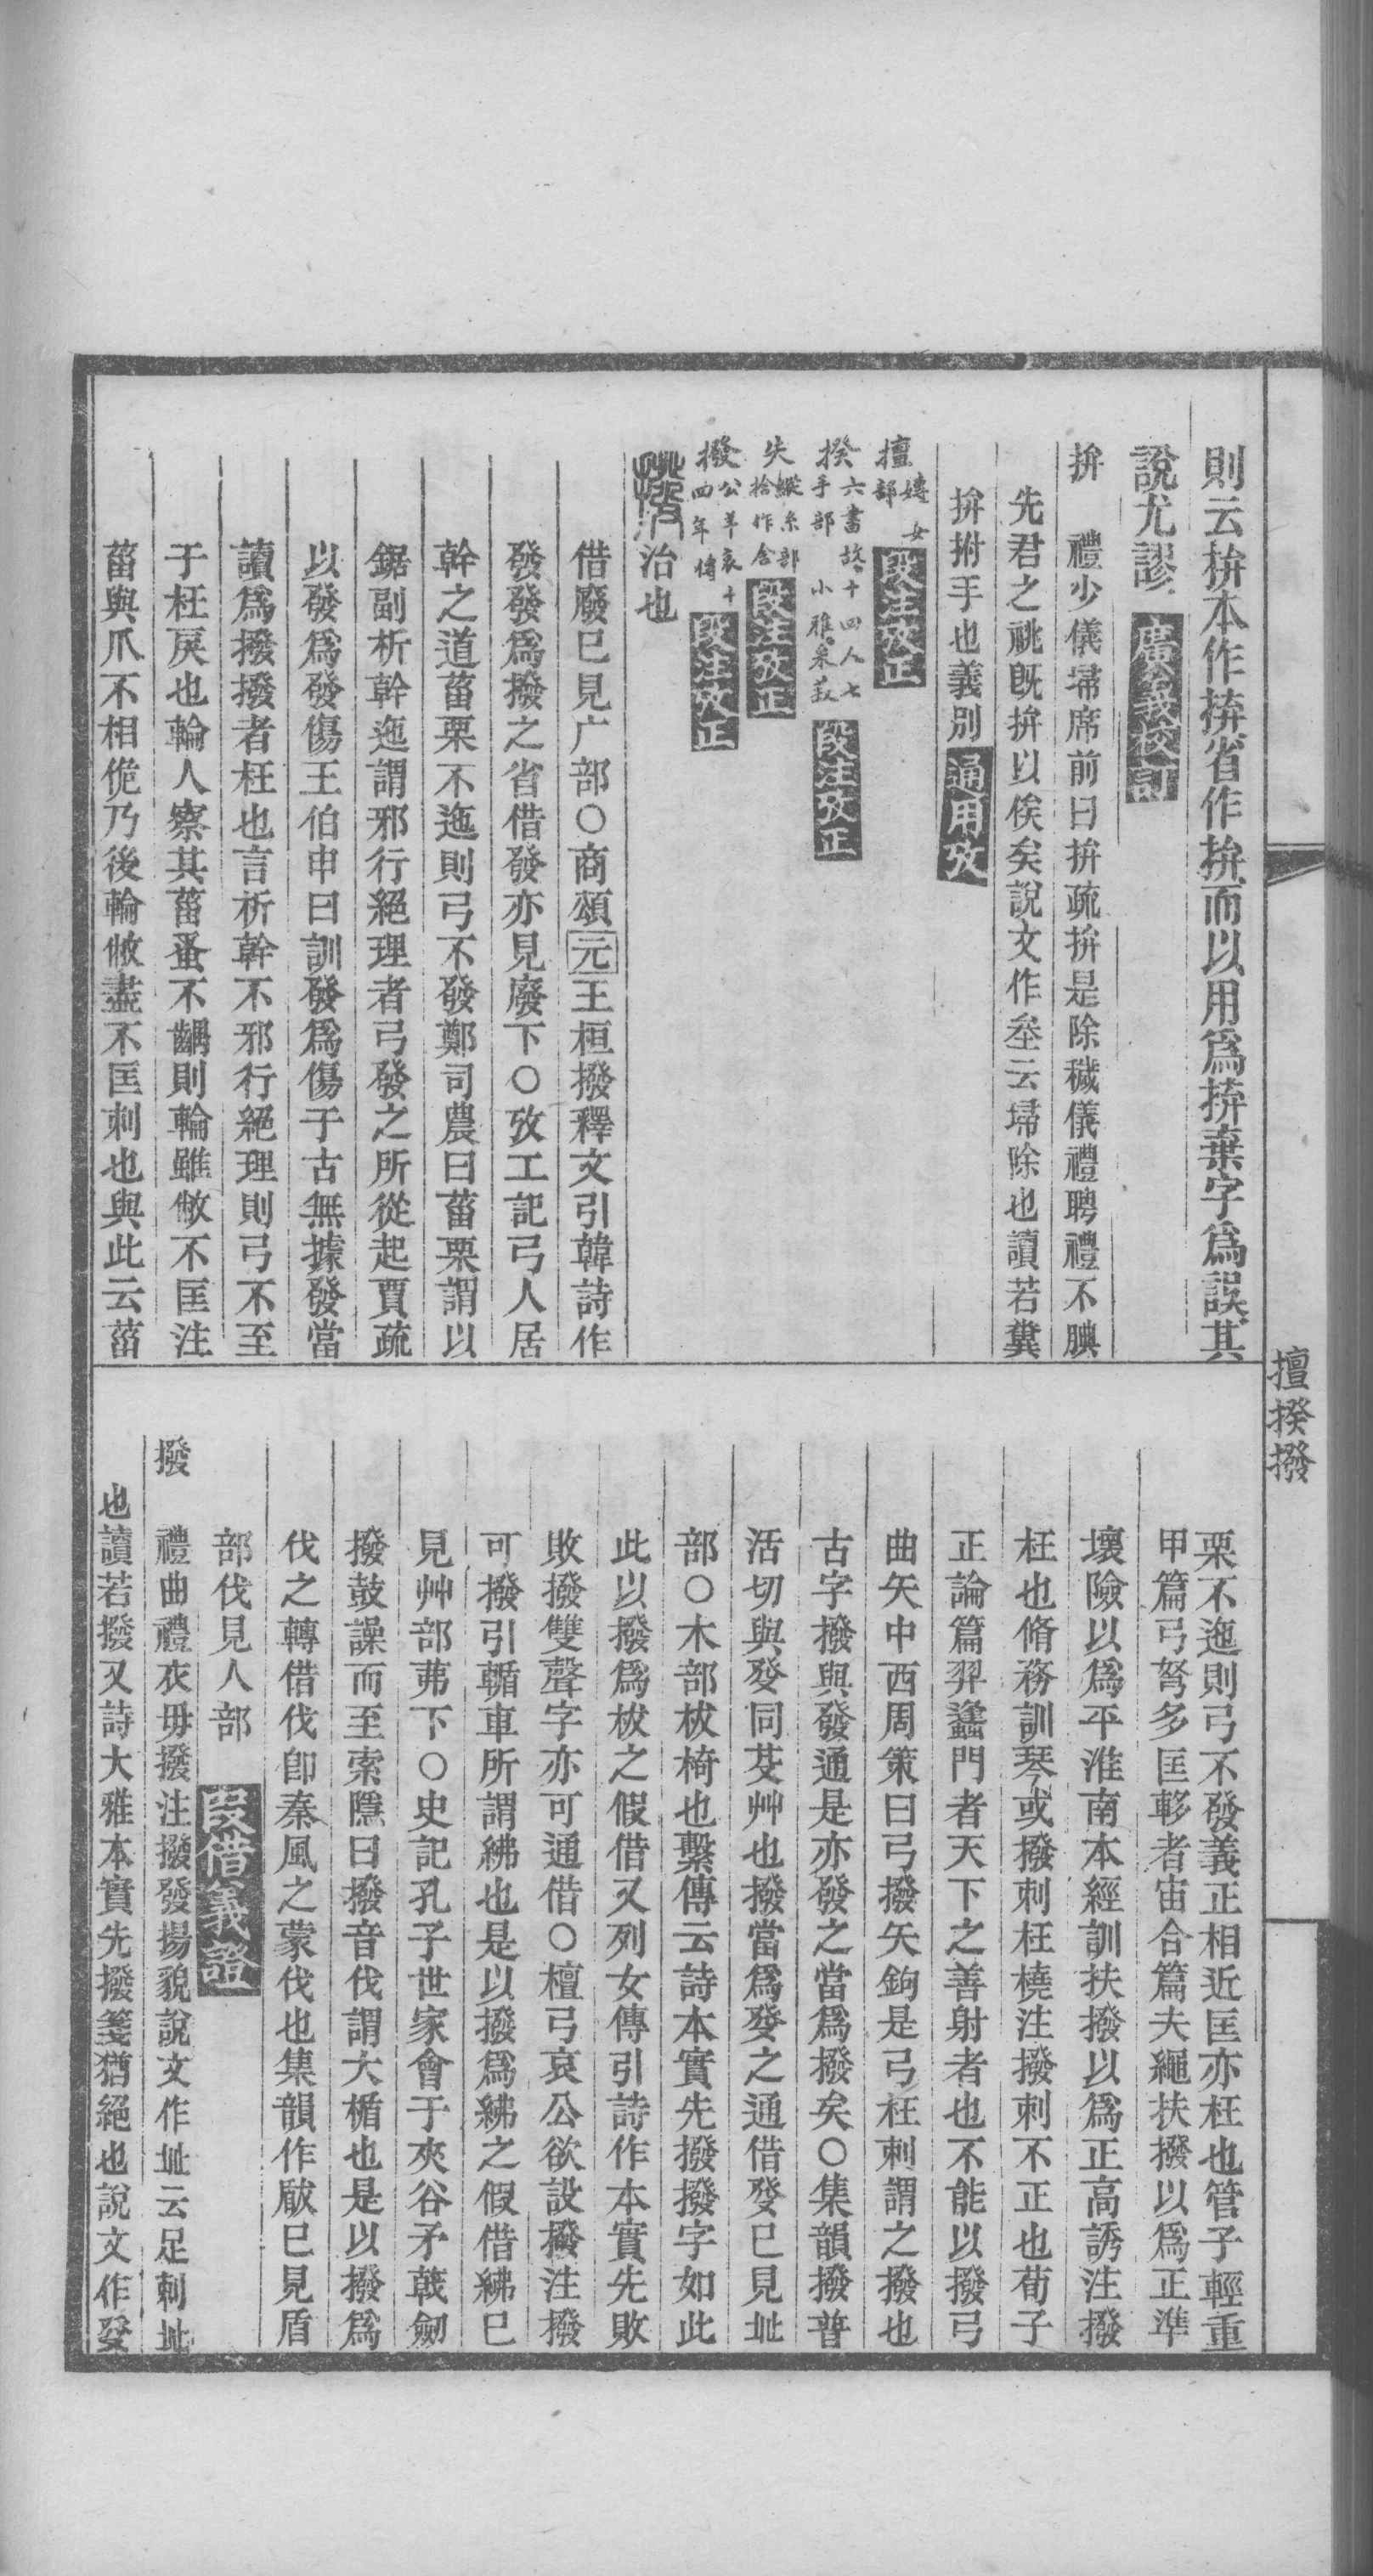 則云拚本作㧒省作拚而以用爲㧒棄字爲誤其
說尤謬 廣義校訂
拚 禮少儀埽席前曰拚疏拚是除穢儀禮聘禮不腆
先君之祧既拚以俟矣說文作坌云埽除也讀若糞
拚拊手也義別 通用攷
擅 嫥女部 段注攷正
揆 六書故十四人七手部 小雅采菽 段注攷正
失 縱糸部捨作舍 段注攷正
撥 公羊哀十四年傳 段注攷正
治也
借廢巳見广部〇商頌元王桓撥釋文引韓詩作
發發爲撥之省借發亦見廢下〇攷工記弓人居
幹之道菑栗不迤則弓不發鄭司農曰菑栗謂以
鋸副析幹迤謂邪行絕理者弓發之所從起賈疏
以發爲發傷王伯申曰訓發爲傷于古無據發當
讀爲撥撥者枉也言析幹不邪行絕理則弓不至
于枉戾也輪人察其菑蚤不齵則輪雖敝不匡注
菑與爪不相佹乃後輪敝盡不匡刺也與此云菑
擅揆撥
栗不迤則弓不發義正相近匡亦枉也管子輕重
甲篇弓弩多匡𨋝者宙合篇夫繩扶撥以爲正準
壞險以爲平淮南本經訓扶撥以爲正高誘注撥
枉也脩務訓琴或撥刺枉橈注撥刺不正也荀子
正論篇羿蠭門者天下之善射者也不能以撥弓
曲矢中西周策曰弓撥矢鉤是弓枉刺謂之撥也
古字撥與發通是亦發之當爲撥矣〇集韻撥普
活切與癹同芟艸也撥當爲癹之通借癹巳見址
部〇木部柭椅也繫傳云詩本實先撥撥字如此
此以撥爲柭之假借又列女傳引詩作本實先敗
敗撥雙聲字亦可通借〇檀弓哀公欲設撥注撥
可撥引輴車所謂紼也是以撥爲紼之假借紼巳
見艸部茀下〇史記孔子世家會于夾谷矛戟劒
撥鼓譟而至索隱曰撥音伐謂大楯也是以撥爲
伐之轉借伐卽秦風之蒙伐也集韻作瞂巳見盾
部伐見人部 叚借義證
撥 禮曲禮衣毋撥注撥發揚貌說文作址云足剌址
也讀若撥又詩大雅本實先撥箋猶絕也說文作癹